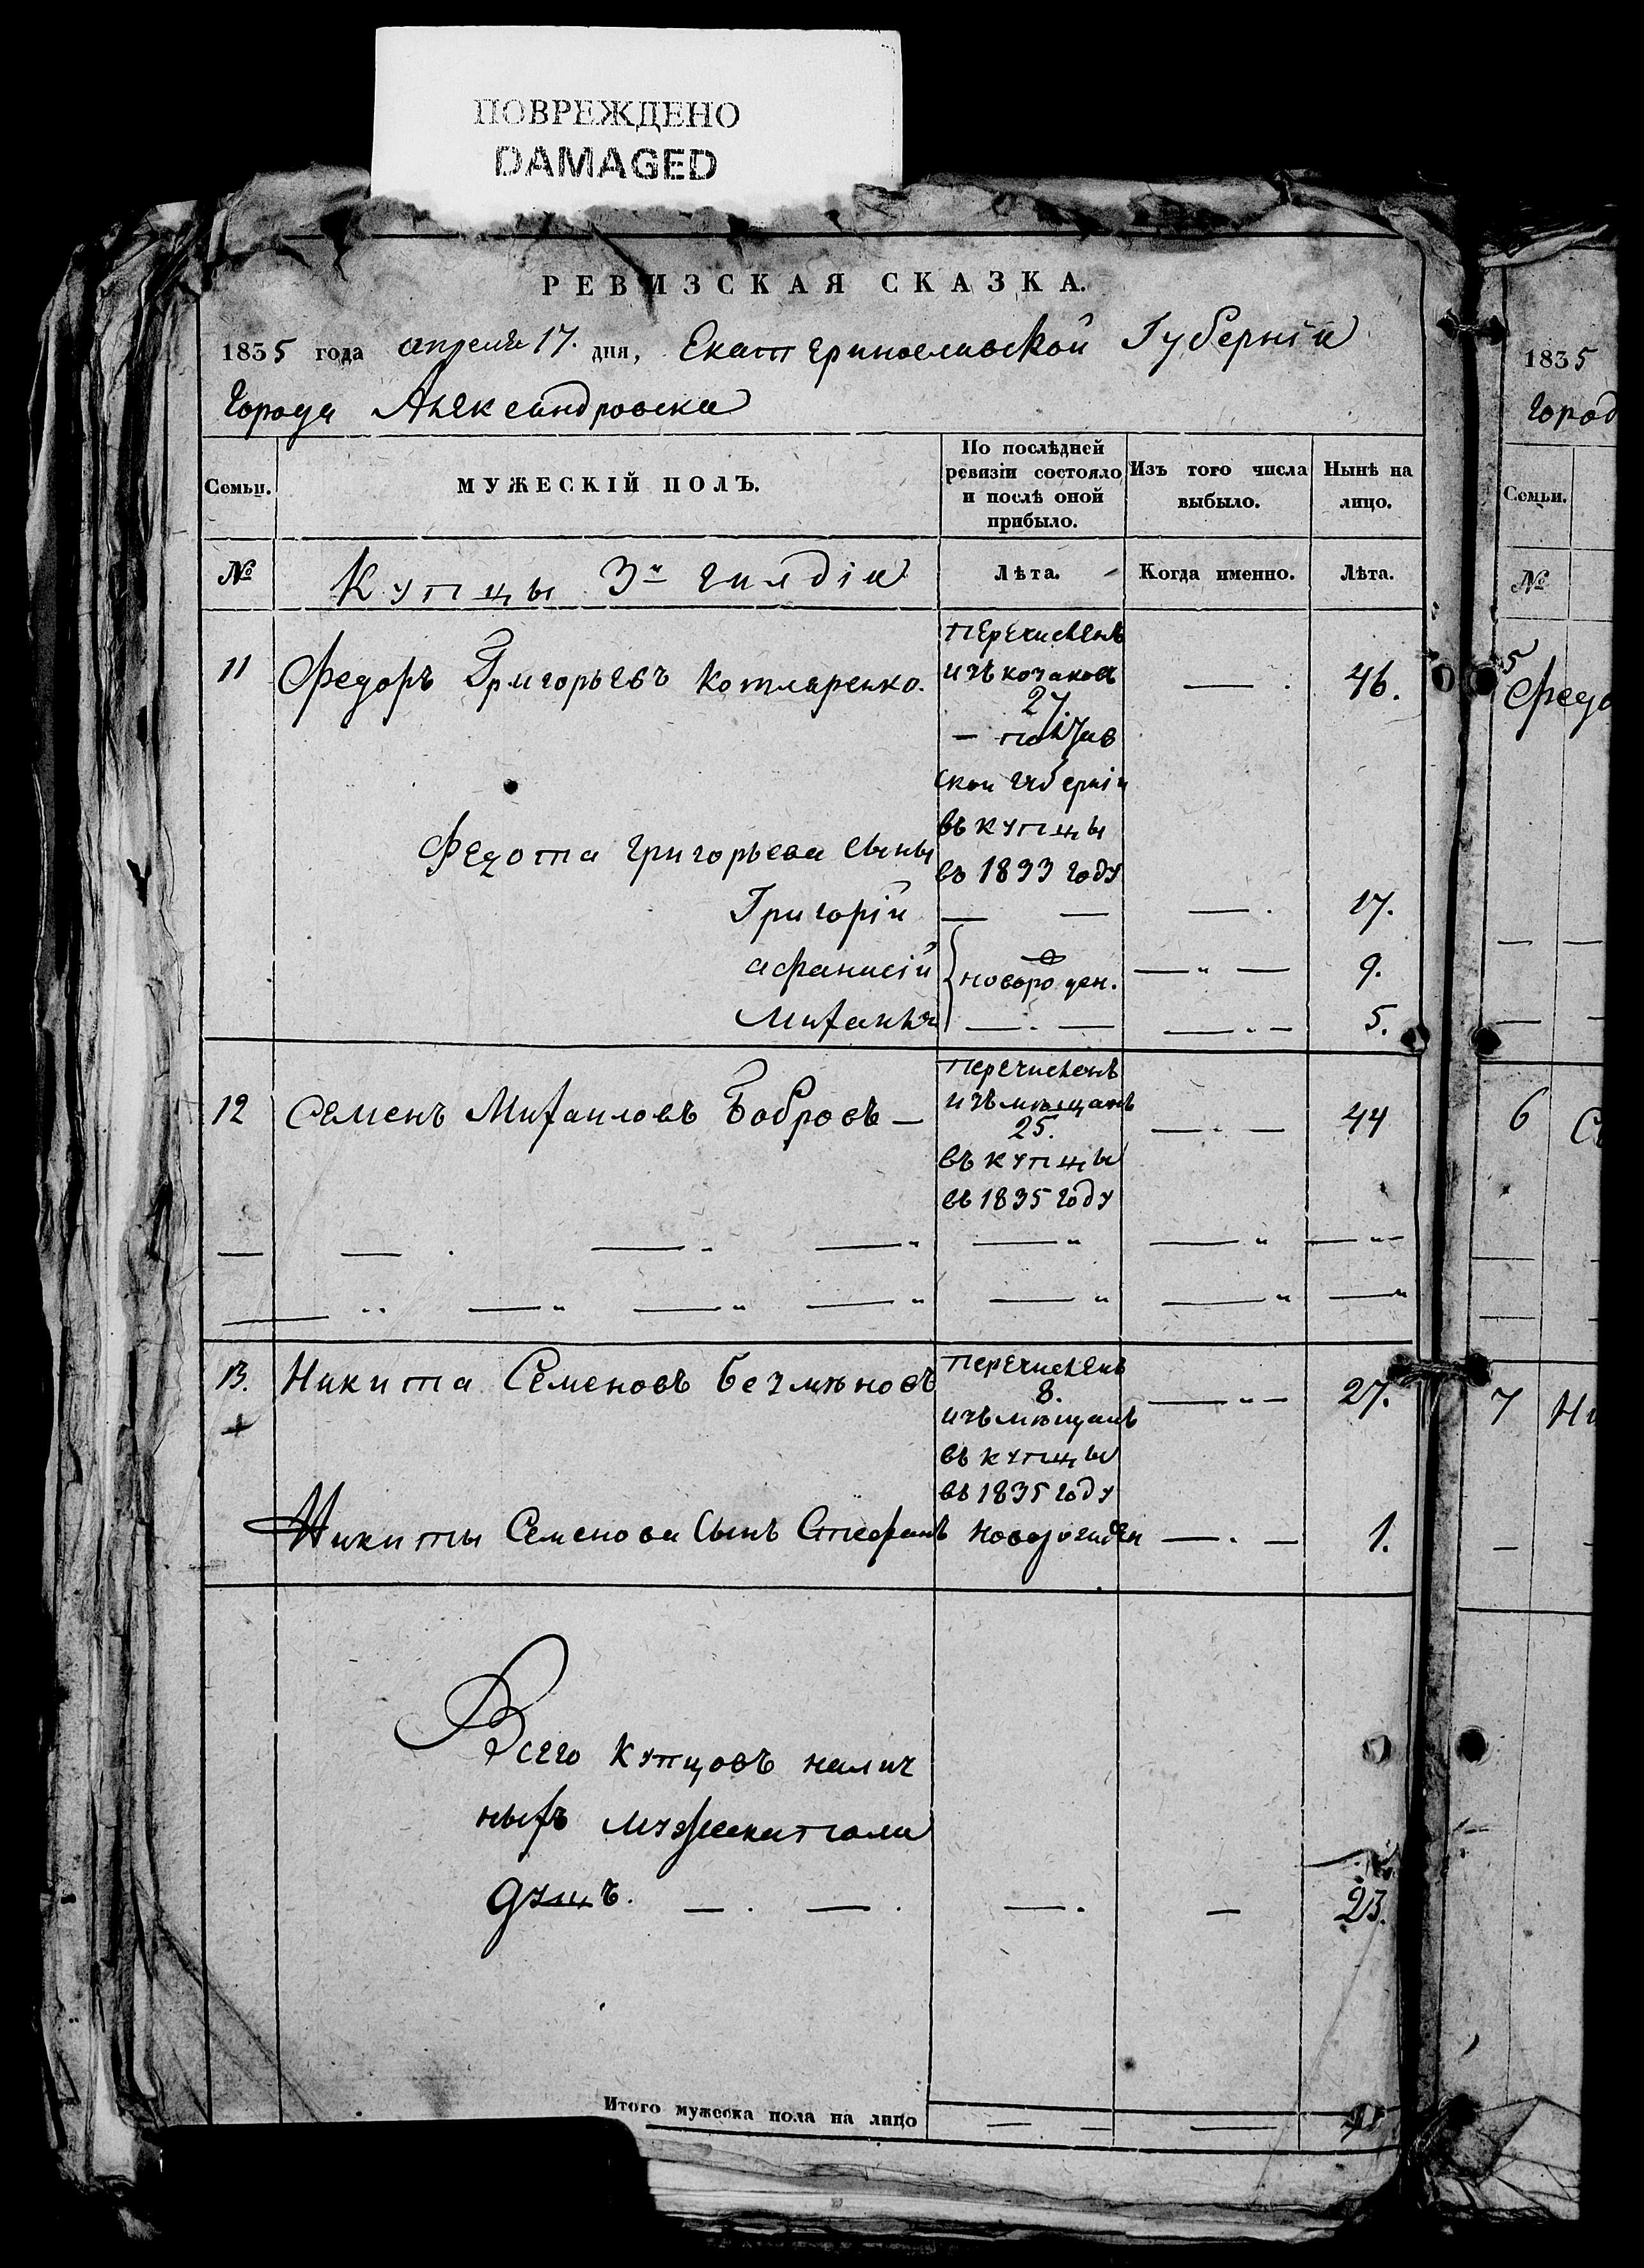 ПОВРЕЖДЕНО
DAMAGED
РЕВИЗСКАЯ СКАЗКА.
1835 года апреля 17. дня, Екатеринославской Губерніи
города Александровска
Семьи. МУЖЕСКІЙ ПОЛЪ. По послѣдней ревизіи состояло и послѣ оной прибыло. Изъ того числа выбыло. Нынѣ на лицо.
№ Купцы 3й гилдіи Лѣта. Когда именно. Лѣта.
перечисленъ
11 Федоръ Григорьевъ Котляренко. изъ козаковъ — . 46.
27.
— полтав
ской губерніи
въ купцы
Федота Григорьева сыны
въ 1833 году
Григорій — — — . 17.
афанасій новорожден. — " — 9.
Михаила — . — — . - 5.
перечисленъ
12 Семенъ Михаиловъ Бобровъ — изъ мещанъ — . — 44
25.
въ купцы
въ 1835 году
13. Никита Семеновъ Безмѣновъ перечисленъ — " — 27.
8.
изъ мѣщанъ
въ купцы
въ 1835 году
Никиты Семенова сынъ Стефанъ новорожден — . — 1.
Всего купцовъ налич
ныхъ мужеска пола
душъ. — . — . — . — 23.
Итого мужеска пола на лицо — — —
1835
город
Семьи.
№
5 Федо
6 С
7 Ни